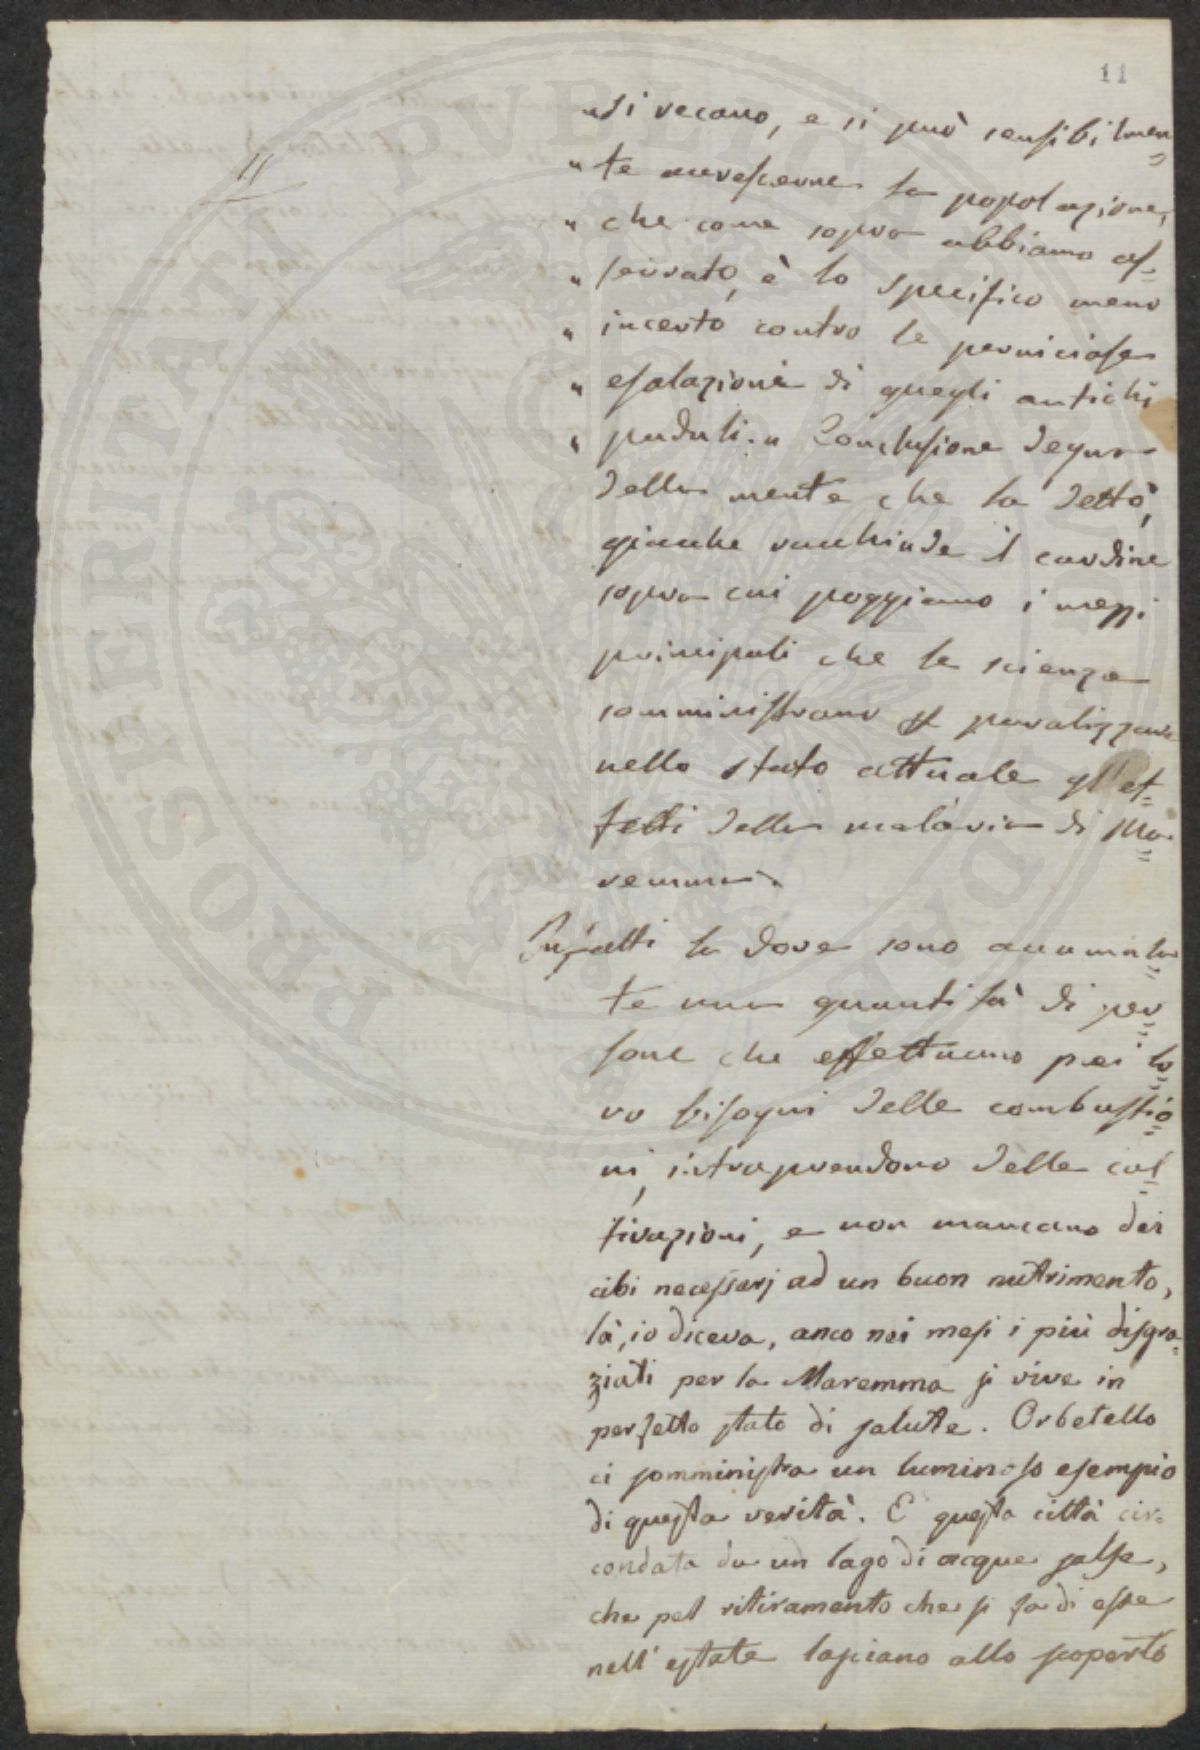 11
11
"si recano, e si può sensibilmen=
" te accrescerne la popolazione,
" che come sopra abbiamo os=
" servato, è lo specifico meno
" incerto contro le perniciose
" esalazioni di quegli antichi
" paduli. " Conclusione degna
della mente che la dettò,
giacche racchiude il cardine
sopra cui poggiano i mezzi
principali che le scienze
somministrano paralizzare
nello stato attuale gl'ef=
fetti della malaria di Ma=
remma.
Infatti la dove sono accumula=
te una quantità di per=
sone che effettuano pei lo=
ro bisogni delle combustio=
ni, intraprendono delle col=
tivazioni, e non mancano dei
cibi necessarj ad un buon nutrimento,
là, io diceva, anco nei mesi i più disgra=
ziati per la Maremma si vive in
perfetto stato di salute. Orbetello
ci somministra un luminoso esempio
di questa verità. E questa città cir=
condata da un lago di acque salse,
che pel ritiramento che si fa di esse
nell'estate lasciano allo scoperto
PROSPERITATI PVBLICAE